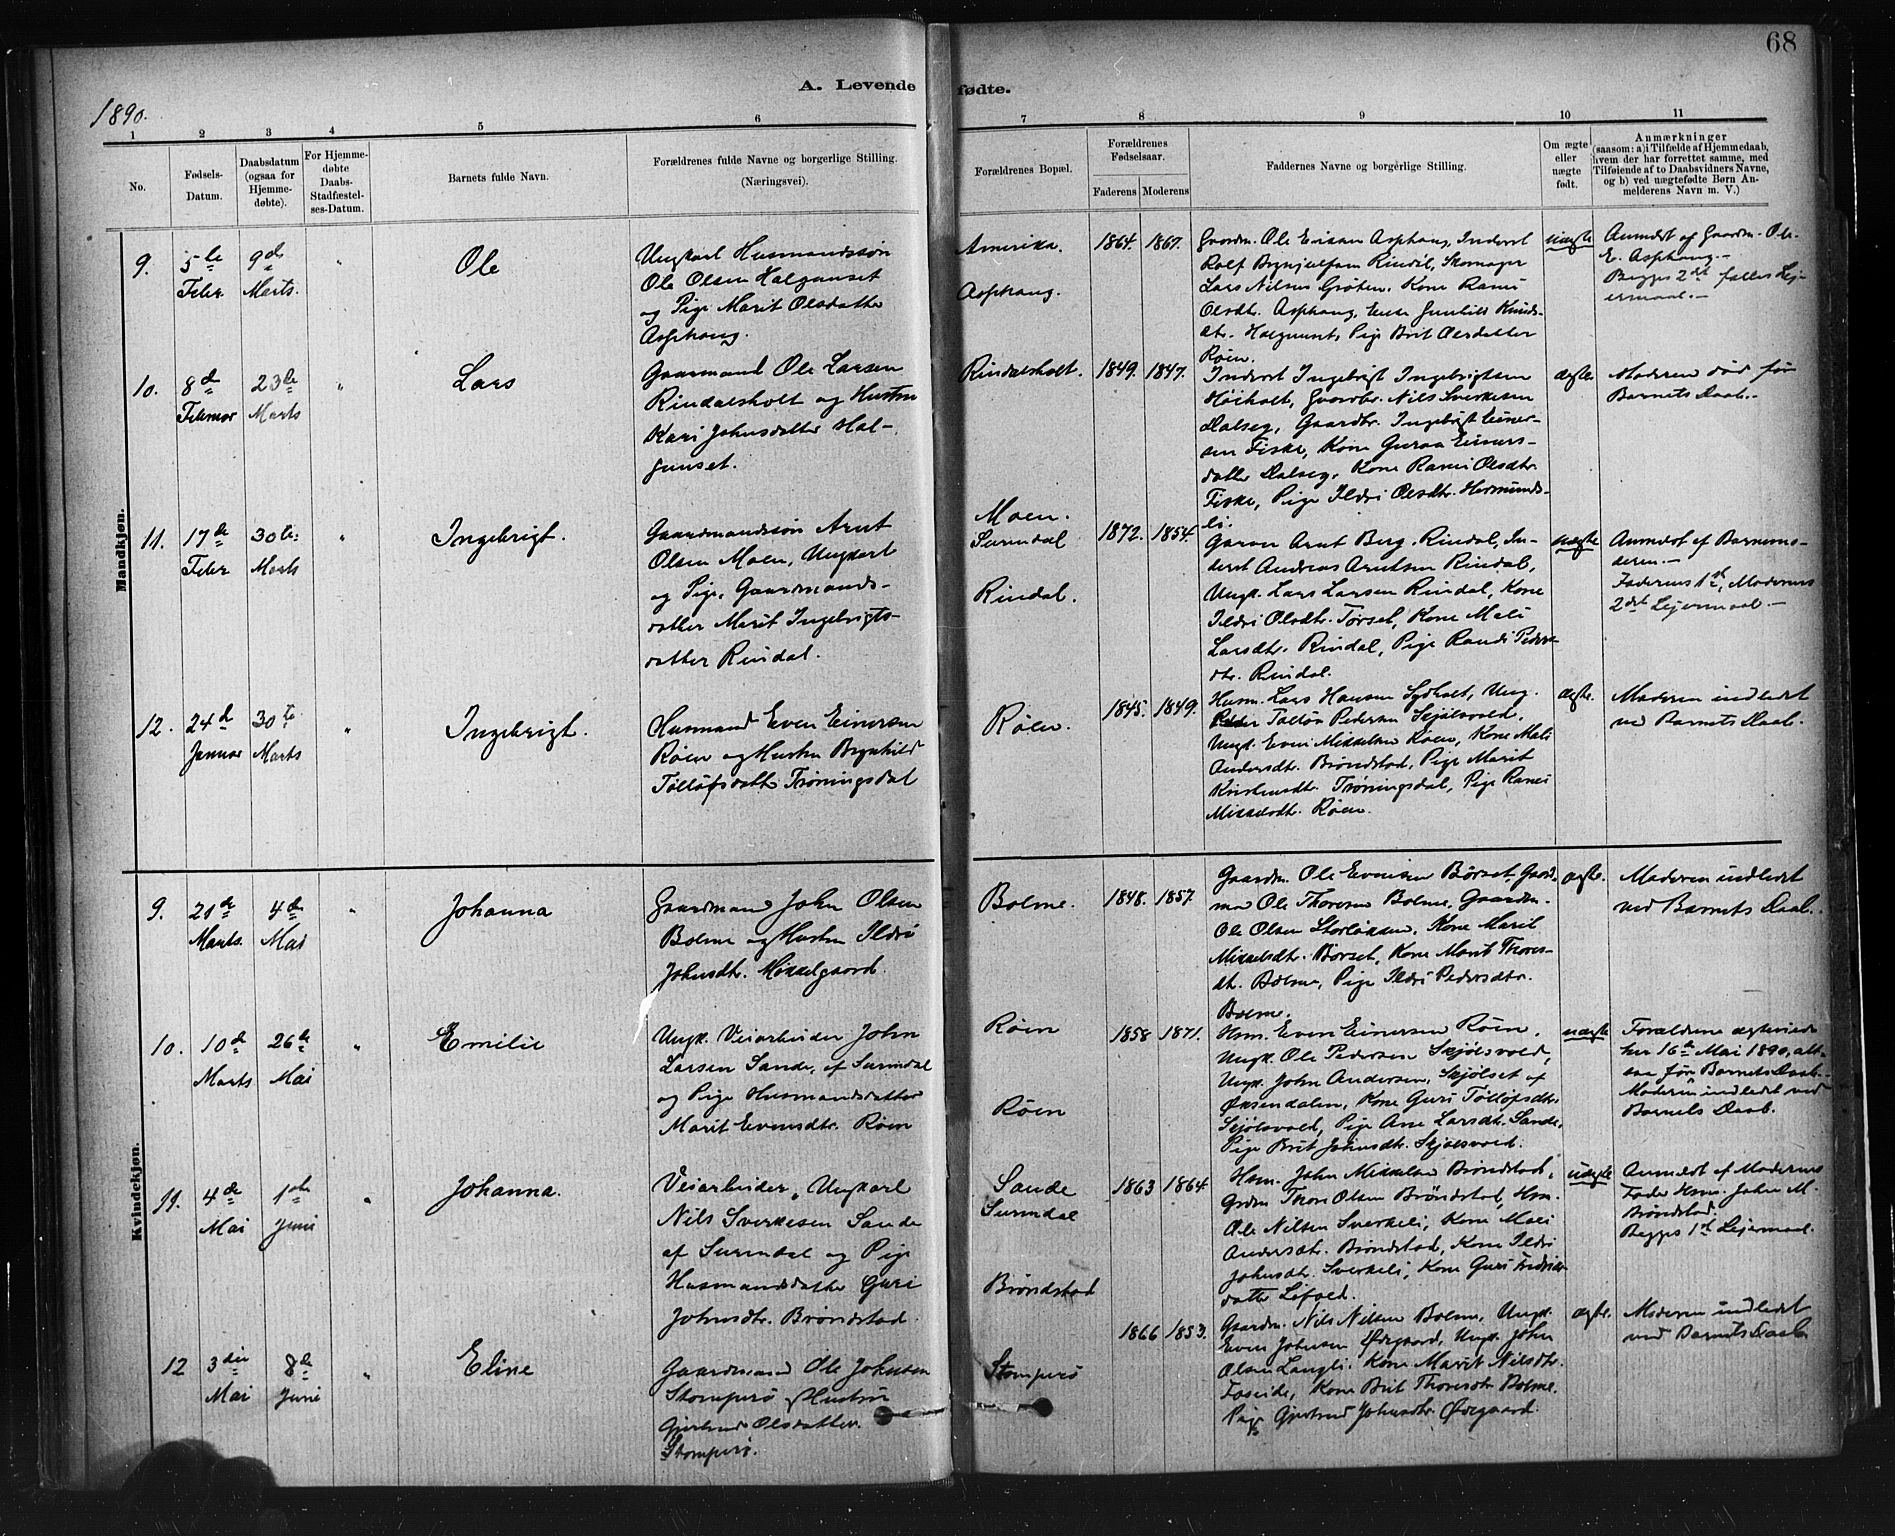 68
A. Levende fødte.
1890.
1 2 3 4 5 6 7 8 9 10 11
No.
Fødsels-
Datum.
Daabsdatum
(ogsaa for
Hjemme-
døbte).
For Hjemme-
døbte
Daabs-
Stadfæstel-
ses-Datum.
Barnets fulde Navn.
Forældrenes fulde Navne og borgerlige Stilling.
(Næringsvei).
Forældrenes Bopæl.
Forældrenes
Fødselsaar.
Faderens Moderens
Faddernes Navne og borgerlige Stilling.
Om ægte
eller
uægte
født.
Anmærkninger
(saasom: a) i Tilfælde af Hjemmedaab,
hvem der har forrettet samme, med
Tilføiende af to Daabsvidners Navne,
og b) ved uægtefødte Børn An-
melderens Navn m. V.)
Mandkjøn.
9.
5te
Febr
9de
Marts.
"
Ole
Ungkarl Husmandssøn
Ole Olsen Halgunset
og Pige Marit Olsdatter
Asphaug.
Amerika.
Asphaug.
1864. 1867.
Gaardm. Ole Ericsen Asphaug, Inderst
Rolf Brynjulfsen Rindal, Skomager
Lars Nilsen Grøten, Kone Rami
Olsdtr. Asphaug, Enke Gunhild Knuds-
dtr. Halgunset, Pige Brit Olsdatter
Røen.
uægte
Anmeldt af Gaardm. Ole
E. Asphaug.-
Begges 2det fælles Lej-
ermaal.-
10.
8de
Februar
23de
Marts
"
Lars
Gaarmand Ole Larsen
Rindalsholt og Hustru
Kari Johnsdatter Hal-
gunset.
Rindalsholt.
1849. 1847.
Inderst Ingebrigt Ingebrigtsen
Høiholt, Gaardbr. Nils Sverkesen
Dalseg, Gaardbr. Ingebrigt Einer-
sen Fiske, Kone Guraa Einers-
datter Dalseg, Kone Rami Olsdtr.
Fiske, Pige Ildri Olsdtr. Hermunds-
li.
ægte.
Moderen død før
Barnets Daab.-
11.
17de
Febr
30te
Marts
"
Ingebrigt.
Gaardmandssøn Arnt
Olsen Moen, Ungkarl
og Pige, Gaardmands-
datter Marit Ingebrigts-
datter Rindal.
Moen.
Surendal
Rindal.
1872. 1854.
Garver Arnt Berg, Rindal, In-
derst Andreas Arntsen Rindal,
Ungk. Lars Larsen Rindal, Kone
Ildri Olsdtr. Tørset, Kone Mali
Larsdtr. Rindal, Pige Randi Peders-
dtr. Rindal.
uægte
Anmeldt af Barnemo-
deren.-
Faderens 1ste, Moderens
2det Lejermaal.-
12.
24de
Januar
30te
Marts
"
Ingebrigt.
Husmand Even Einersen
Røen og Hustru Brynhild
Tølløfsdatt. Trøningsdal
Røen.
1845. 1849.
Husm. Lars Hansen Sydholt, Ung.
Tølløv Pedersen Skjølsvold,
Ungk. Even Mikkelsen Røen, Kone Mali
Andersdtr. Brøndstad, Pige Marit
Kristensdtr. Trøningsdal, Pige Rami
Mikkelsdtr. Røen.
ægte.
Moderen indledet
ved Barnets Daab.
Kvindekjøn.
9.
21de
Marts.
4de
Mai
"
Johanna
Gaardmand John Olsen
Bolme og Hustru Ildri
Johnsdtr. Mikkelgaard.
Bolme.
1848. 1857.
Gaardm. Ole Evensen Børset, Gaard-
mand Ole Thoresen Bolme, Gaardm.
Ole Olsen Storløkken, Kone Marit
Mikkelsdtr. Børset, Kone Marit Thores-
dtr. Bolme, Pige Ildri Pedersdtr.
Bolme.
ægte.
Moderen indledet
ved Barnets Daab.
10.
10de
Marts
26de
Mai
"
Emilie
Ungk. Veiarbeider John
Larsen Sande, af Surendal
og Pige Husmandsdatter
Marit Evensdtr. Røen
Røen
Røen
1858 1871.
Hsm. Even Einersen Røen,
Ungk. Ole Pedersen Skjølsvold,
Ungk. John Andersen, Skjølset af
Øksendalen, Kone Guri Tølløfsdtr.
Skjølsvold, Pige Ane Larsdtr. Sande,
Pige Brit Johnsdtr. Skjølsvold.
uægte
Forældrene ægteviede
her 16de Mai 1890, alt-
saa før Barnets Daab.
Moderen indledet ved
Barnets Daab.
11.
4de
Mai
1ste
Juni
"
Johanna.
Veiarbeider, Ungkarl
Nils Sverkesen Sande
af Surendal og Pige
Husmandsdatter Guri
Johnsdtr. Brøndstad.
Sande
Surendal
Brøndstad
1863 1864
Hsm. John Mikkelsen Brøndstad,
Grdm. Thore Olsen Brøndstad, Hsm.
Ole Nilsen Sverkeli, Kone Mali
Andersdtr. Brøndstad, Kone Ildri
Johnsdtr. Sverkeli, Kone Guri Fredriks-
datter Løfald.
uægte
Anmeldt af Moderens
Fader Hsm. John M.
Brøndstad.
Begges 1ste Lejermaal.
12
3die
Mai
8de
Juni
"
Eline
Gaardmand Ole Johnsen
Stomperø og Hustru
Gjertrud Olsdatter
Stomperø.
Stomperø
1866 1853.
Gaardm. Nils Nilsen Bolme, Ungk.
Even Johnsen Ødegaard, Ungk. John
Olsen Langli. Kone Marit Nilsdtr.
Foseide, Kone Brit Thoresdtr. Bolme.
Pige Gjertrud Johnsdtr. Ødegaard.
ægte.
Moderen indledet
ved Barnets Daab